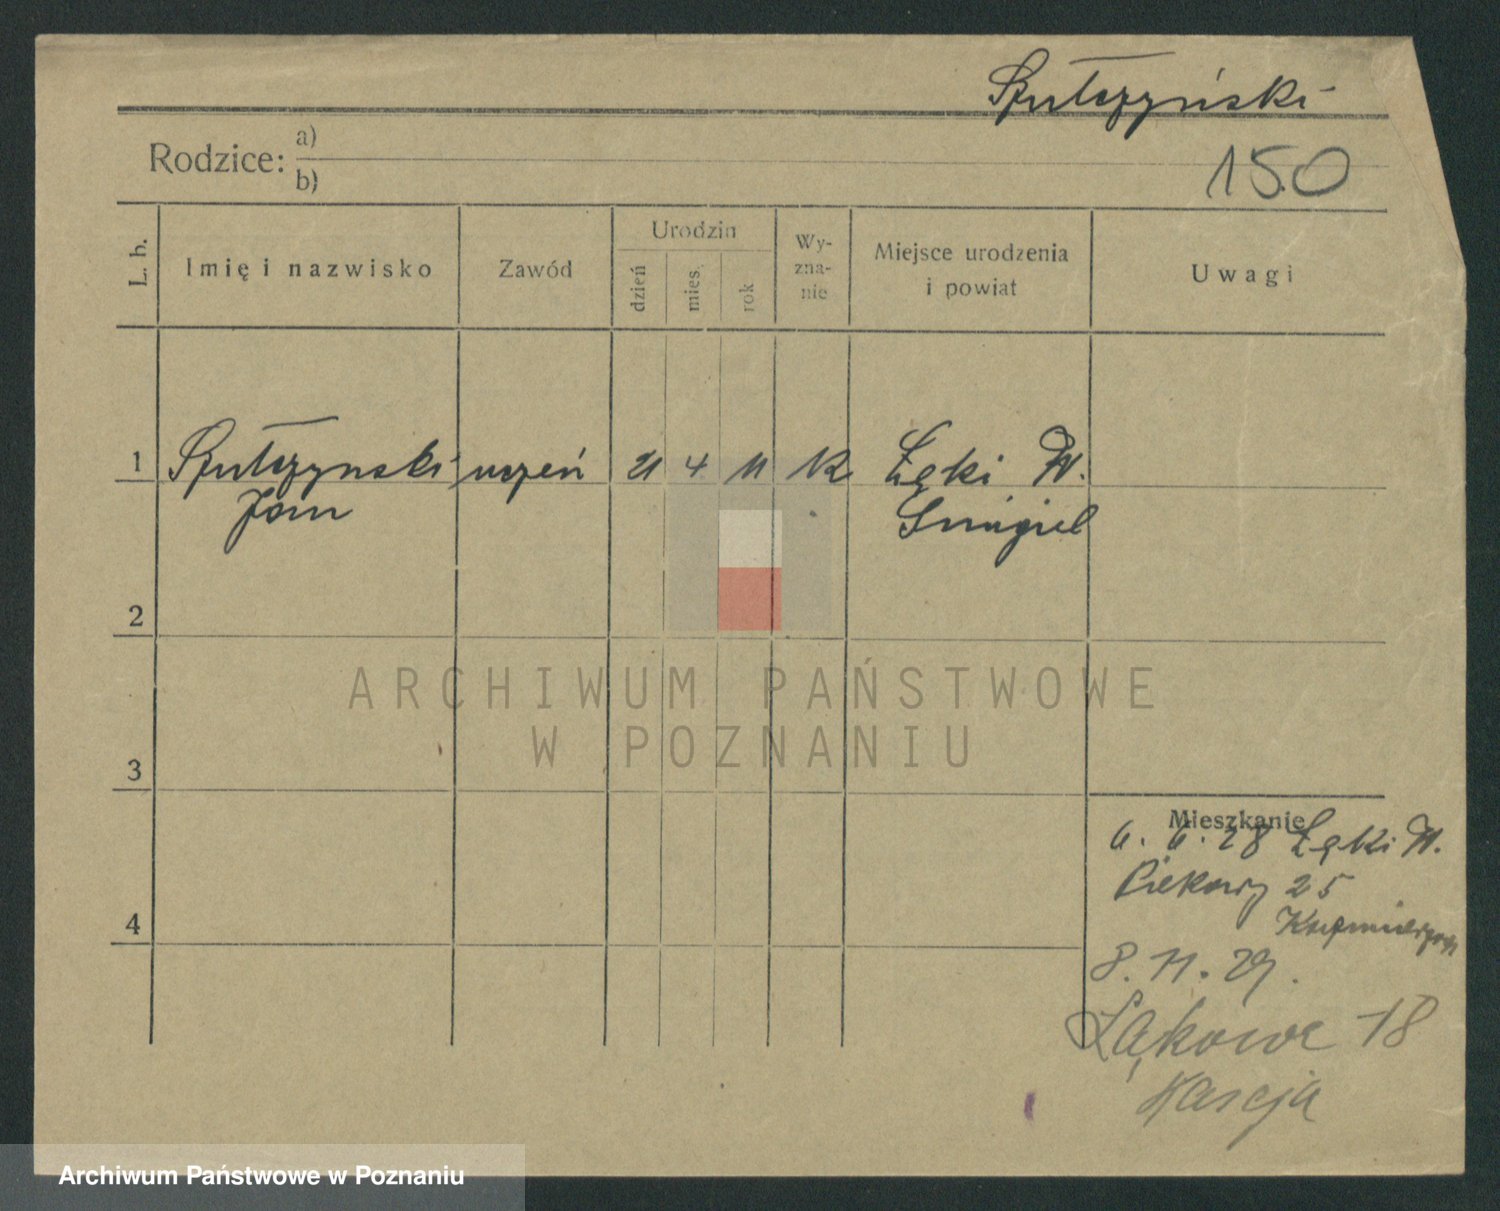 Szulczyński
150
Rodzice: a)
b)
L. b. Imię i nazwisko Zawód Urodzin dzień mies. rok Wy-zna-nie Miejsce urodzenia i powiat Uwagi
1 uczeń 21 4 11 Łęki W.
Jan Śmigiel
2
ARCHIWUM PAŃSTWOWE
W POZNANIU
3
Mieszkanie
6. 6. 28 Łęki W.
Piekary 25
4
8. 11. 29.
Łąkowa 18
Archiwum Państwowe w Poznaniu